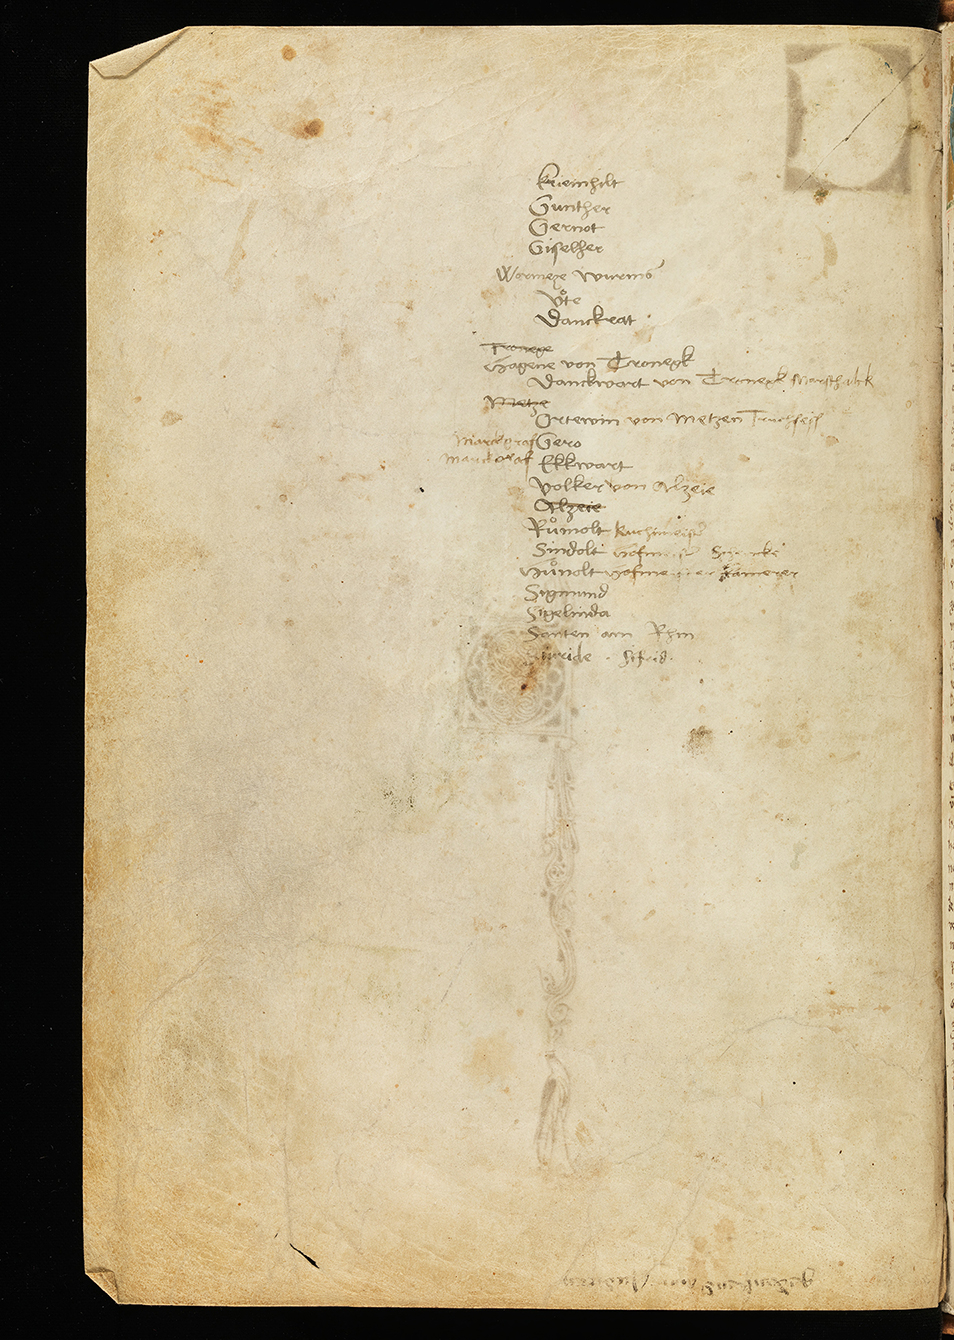 Kriemhilt
Gunther
Gernot
Giselher
Wormeze Wurms
Vͦte
Danckrat
Tronege
Hagene von Tronegk
Danckwart von Tronegk Marschalck
Metze
Ortewin von Metzen Truchsess
Marckgraf Gero
Marckgraf Ekkwart
Volker von Alzeie
Alzeie
Ruͦmolt Kuchmeister
Sindolt Hofmeister Schencke
Huͦnolt Hofmeister kamerer
Sigmund
Sigelinda
Santen am Rhin
Sivride . Sifrid.